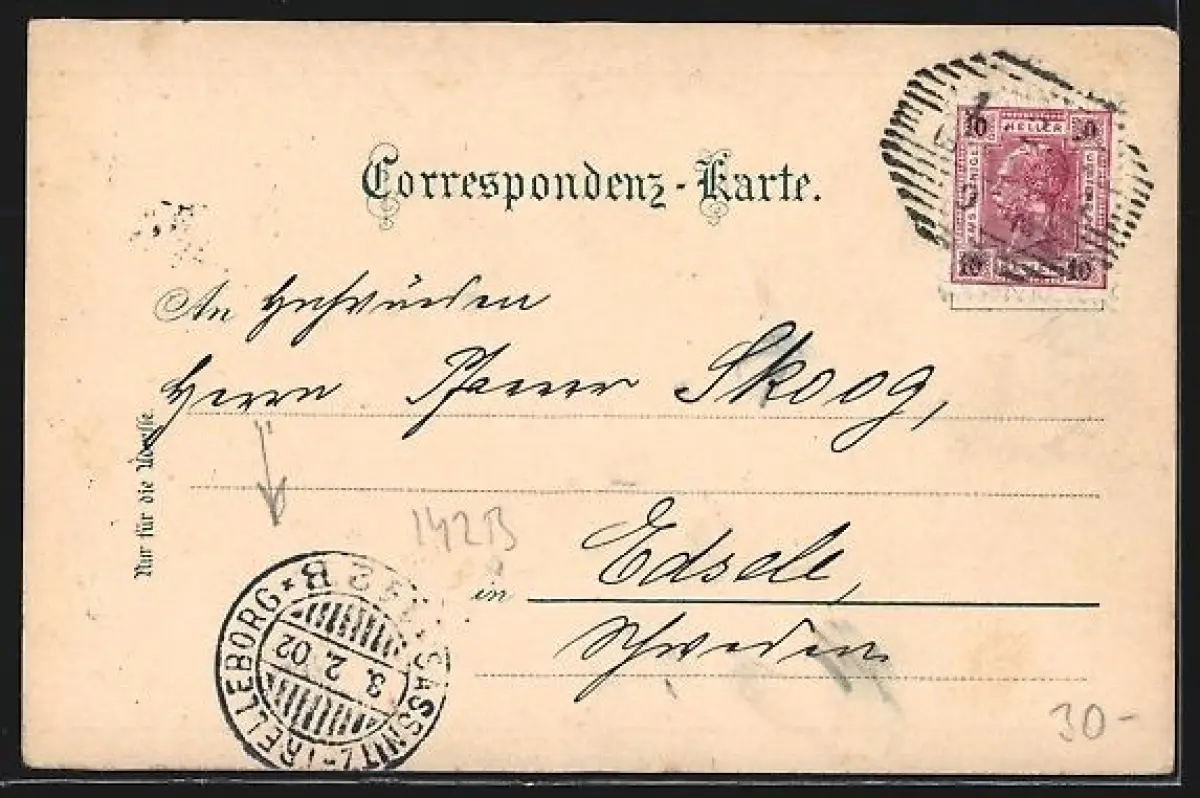 Correspondenz-Karte.
10 HELLER 10
10 10
An Hochwürden
Herrn Pfarrer Skoog,
Nur für die Adresse.
142B
in Edsele,
Schweden
SASSNITZ-TRELLEBORG * 142 B
3. 2. 02
30-